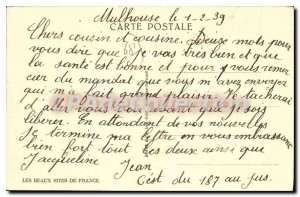 Mulhouse le 1-2-39
CARTE POSTALE
Chers cousin et cousine. Deux mots pour
vous dire que je vais très bien et que
la santé est bonne et pour vous remer
cier du mandat que vous m'avez envoyer
qui m'a fait grand plaisir. Je tacherai
d'aller vous voir avant que je sois
liberer. En attendant de vos nouvelles
Je termine ma lettre en vous embrassant
bien fort tout les deux ainsi que
Jacqueline Jean
LES BEAUX SITES DE FRANCE
C'est du 187 au jus.